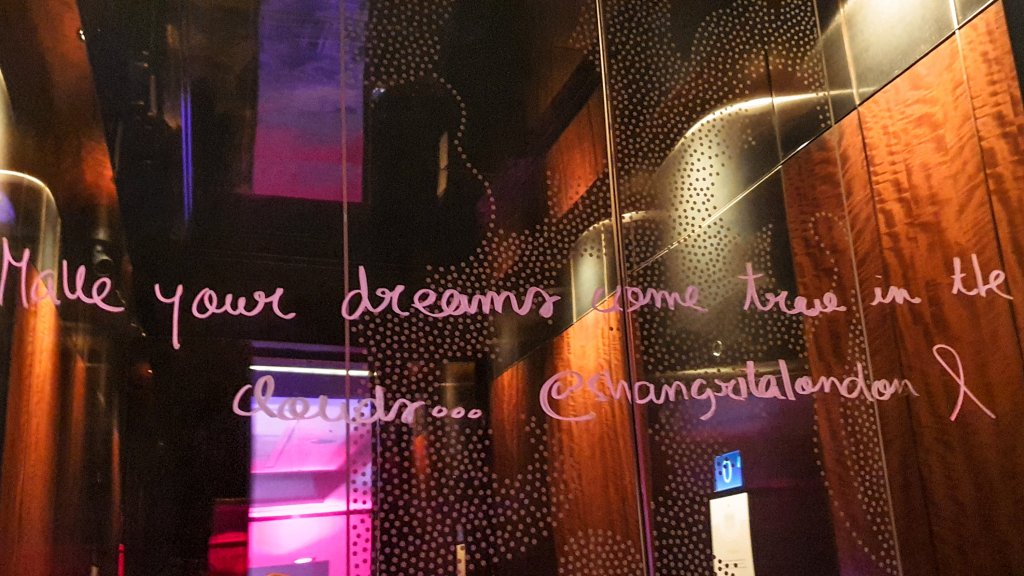 Make your dreams come true in the
clouds... @shangrilalondon